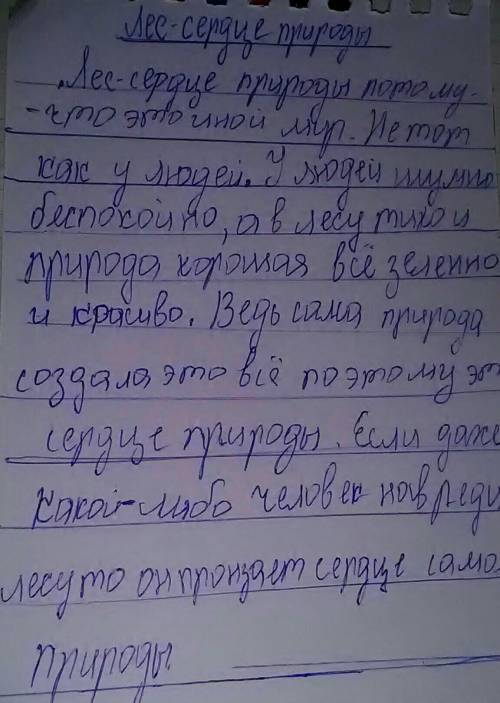 Лес-сердце природы
Лес-сердце природы потому-
-что это иной мир. Не тот
как у людей. У людей шумно
беспокойно, а в лесу тихо и
природа хорошая всё зеленно
и красиво. Ведь сама природа
создала это всё поэтому эт
сердце природы. Если даже
какой-либо человек навреди
лесу то он пронзает сердце само
природы